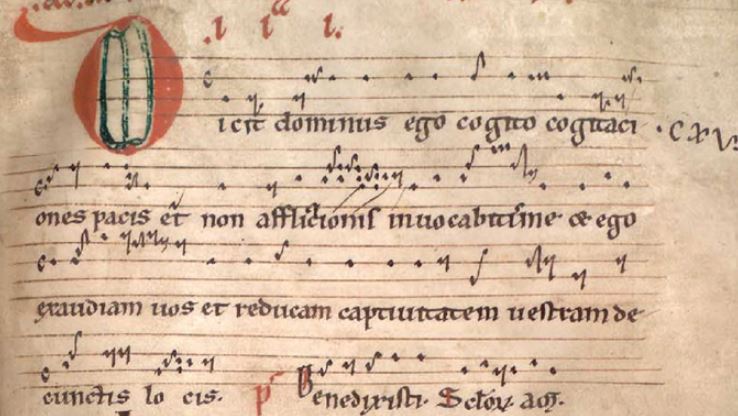 .i iᵃ i.
Dicit dominus ego cogito cogitaci
ones pacis et non afflictionis inuocabitis me et ego
exaudiam uos et reducam captiuitatem uestram de
cunctis lo cis. p̄ Benedixisti.